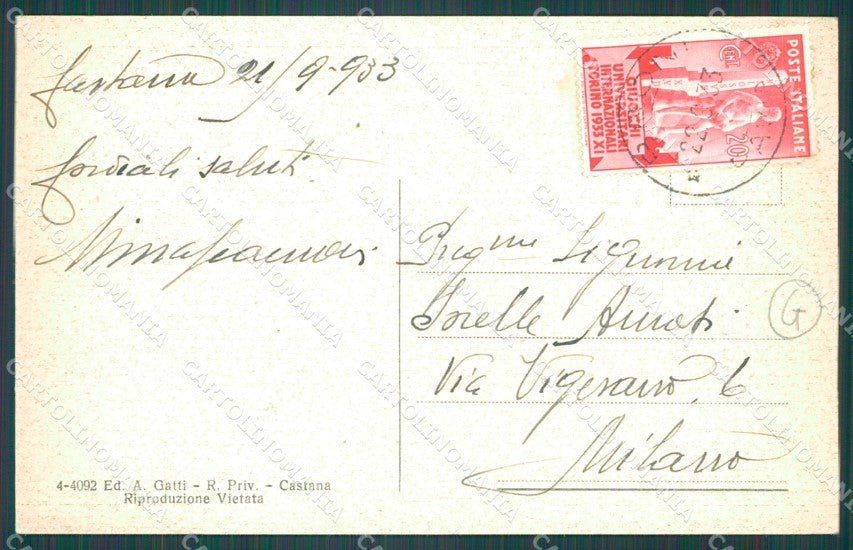 Castana 21/9-933
Cordiali saluti
POSTE ITALIANE
CENT
20
GIUOCHI
UNIVERSITARI
INTERNAZIONALI
TORINO 1933 XI
Preg.me Signorine
Sorelle
Via Vigevano, 6
Milano
G
4-4092 Ed. A. Gatti - R. Priv. - Castana
Riproduzione Vietata
CARTOLINOMANIA